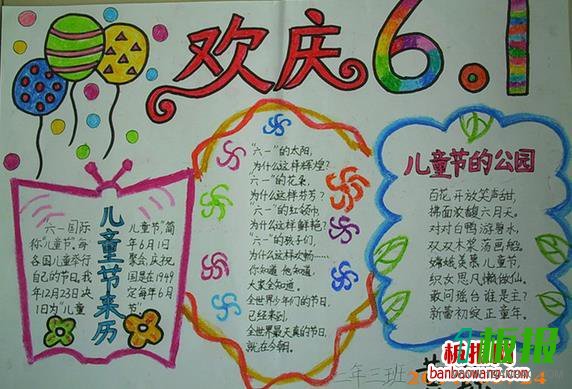 欢庆6.1
儿童节来历
六一国际儿童节,简
你"儿童节"。每年6月1日
各国儿童举行聚会,庆祝
自己的节日。我国是在1949
年12月23日决定每年6月
1日为"儿童节"。
"六一"的太阳,
为什么这样辉煌?
"六一"的花朵,
为什么这样芬芳?
"六一"的红领巾,
为什么这样鲜艳?
"六一"的孩子们,
为什么这样欢畅……
你知道 他知道.
大家全知道.
全世界少年们的节日,
已经来到.
全世界最天真的节日,
就在今朝.
儿童节的公园
百花开放笑声甜,
拂面浓馥六月天。
对对白鸭游碧水,
双双木桨荡画船。
嫦娥羡慕儿童节,
织女思凡懒做仙。
敢问瑶台谁是主?
新蕾初绽正童年。
二年三班
板报网
banbaowang.com